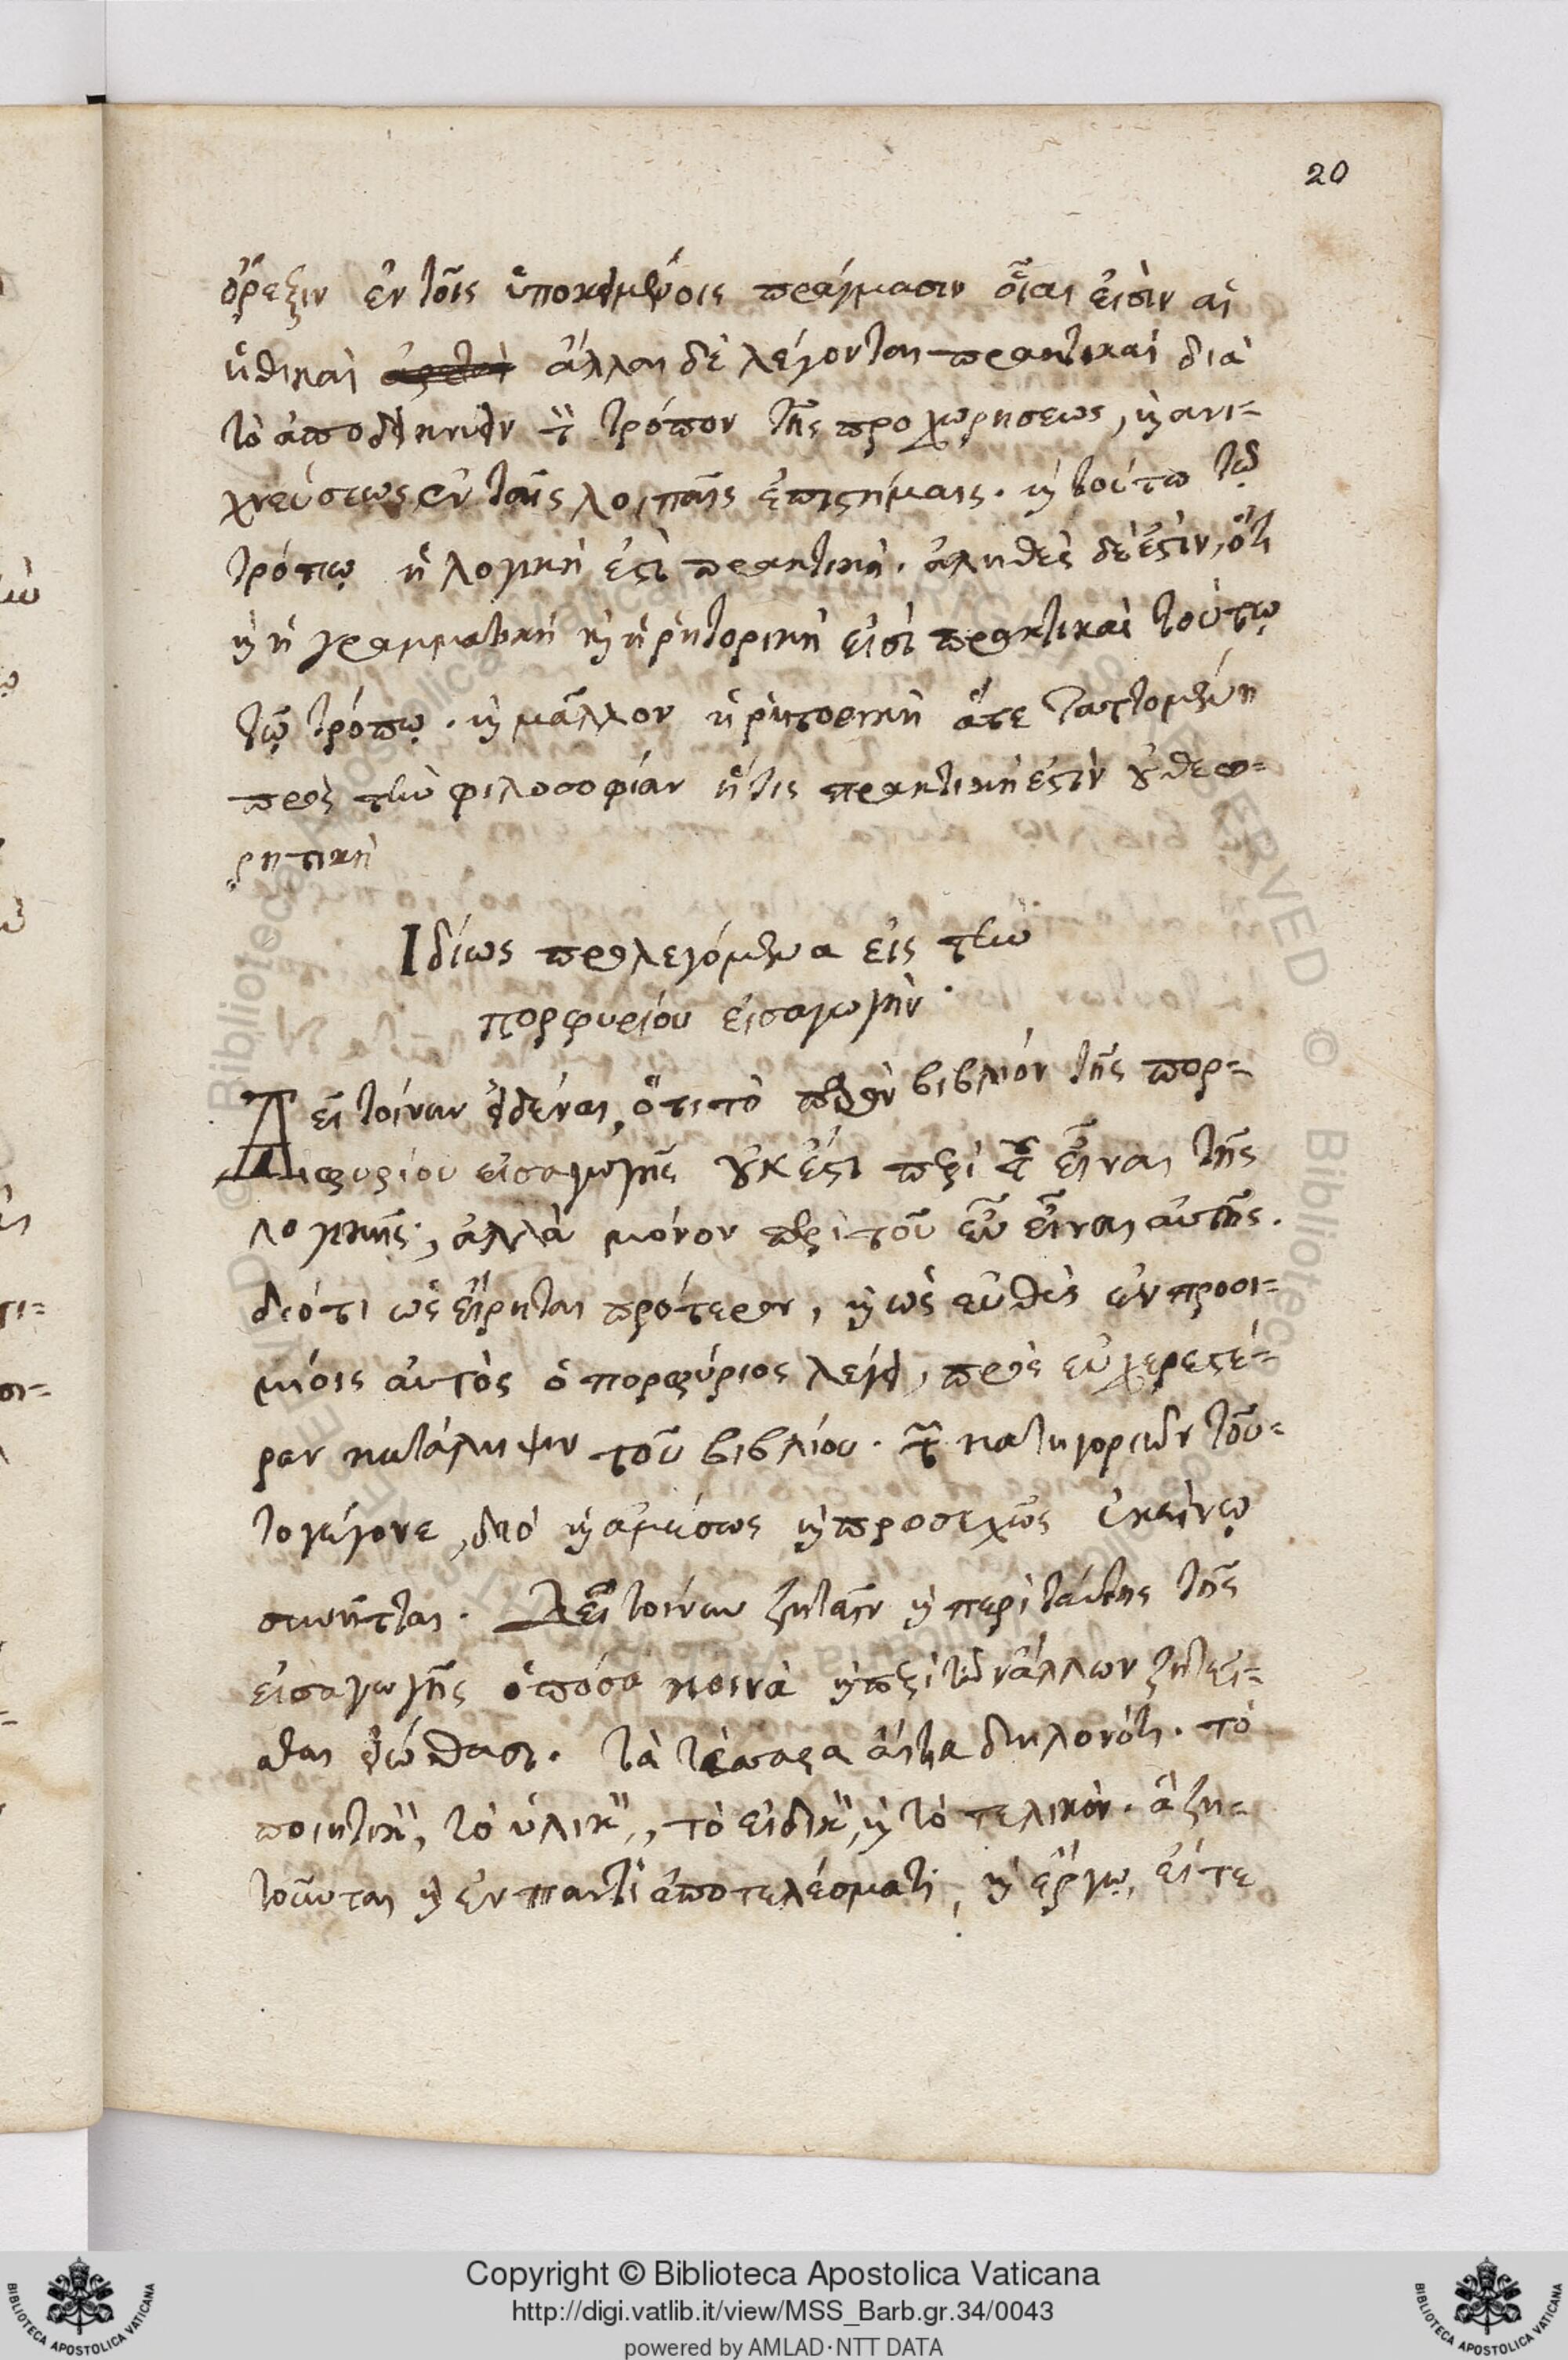 20
ὄρεξιν ἐν τοῖς ὑποκειμένοις πράγμασιν οἷαι εἰσὶν αἱ
ἠθικαὶ ἄλλαι δὲ λέγονται πρακτικαὶ διὰ
τὸ ἀποδεικνύειν τὸν τρόπον τῆς προχωρήσεως, καὶ ἀνι-
χνεύσεως ἐν ταῖς λοιπαῖς ἐπιστήμαις. καὶ τούτω τῷ
τρόπῳ ἡ λογικὴ ἐστὶ πρακτικὴ. ἀληθὲς δὲ ἐστὶν, ὅτι
καὶ ἡ γραμματικὴ καὶ ἡ ῥητορικὴ εἰσὶ πρακτικαὶ τούτῳ
τῷ τρόπῳ. καὶ μᾶλλον ἡ ῥητορικὴ ἅτε ταττομένη
πρὸς τὴν φιλοσοφίαν ἥτις πρακτικὴ ἐστὶν οὐ θεω-
ρητικὴ
Ἰδίως προλεγόμενα εἰς τὴν
πορφυρίου εἰσαγωγὴν.
Δεῖ τοίνυν εἰδέναι, ὅτι τὸ παρὸν βιβλίον τῆς πορ-
φυρίου εἰσαγωγῆς οὐκ ἔστι περὶ τοῦ εἶναι τῆς
λογικῆς, ἀλλὰ μόνον περὶ τοῦ εὖ εἶναι αὐτῆς.
διότι ὡς εἴρηται πρότερον, καὶ ὡς εὐθὺς ἐν προοι-
μίοις αὐτὸς ὁ πορφύριος λέγει, πρὸς εὐχερεστέ-
ραν κατάληψιν τοῦ βιβλίου. τῶν κατηγοριῶν τοῦ-
το γέγονε, διὸ καὶ ἀμέσως καὶ προσεχῶς ἐκείνῳ
συνῆπται. Δεῖ τοίνυν ζητεῖν καὶ περὶ ταύτης τῆς
εἰσαγωγῆς ὁπόσα κοινὰ καὶ περὶ τῶν ἄλλων ζητεῖ-
σθαι εἰώθασι. τὰ τέσσαρα αἴτια δηλονότι. τὸ
ποιητικὸν, τὸ ὑλικὸν, τὸ εἰδικὸν, καὶ τὸ τελικὸν. ἃ ζη-
τοῦνται καὶ ἐν παντὶ ἀποτελέσματι, καὶ ἔργῳ, εἴτε
Copyright © Biblioteca Apostolica Vaticana
http://digi.vatlib.it/view/MSS_Barb.gr.34/0043
powered by AMLAD·NTT DATA